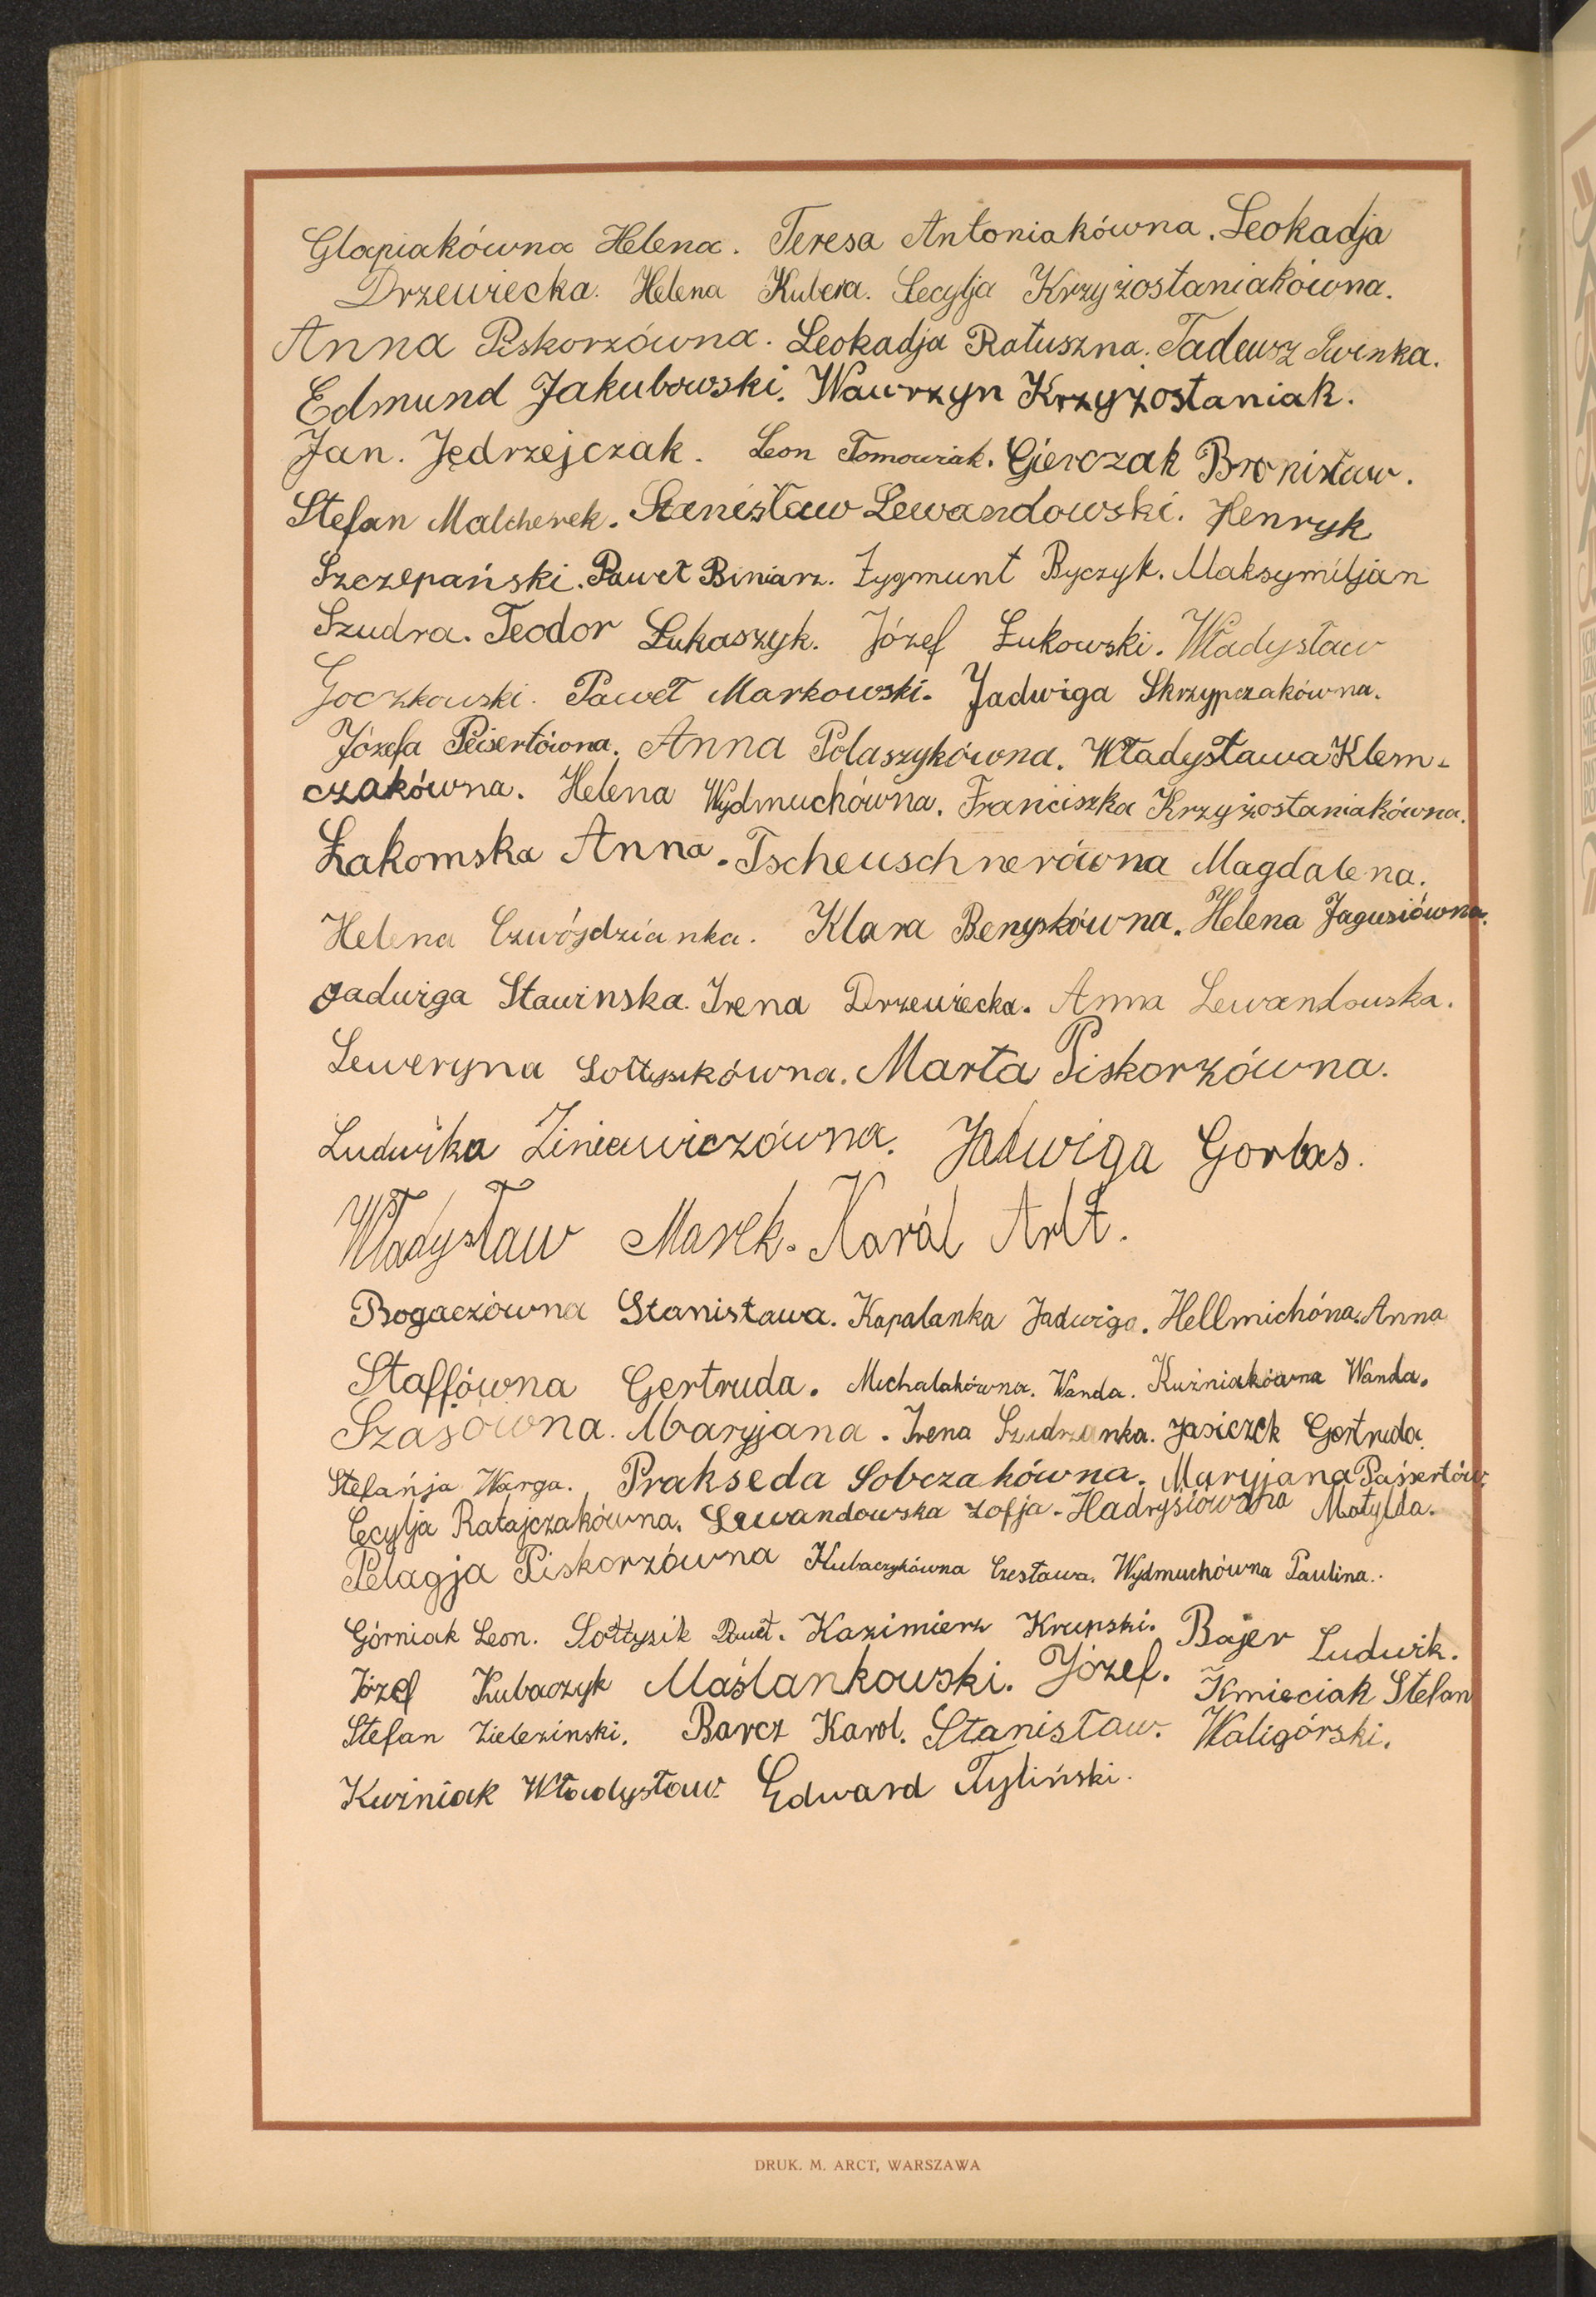 Glapiakówna Helena. Teresa Antoniakówna. Leokadja
Drzewiecka. Helena Kubera. Cecylja Krzyżostaniakówna.
Anna Piskorzówna. Leokadja Ratuszna. Tadeusz Świnka.
Edmund Jakubowski. Wawrzyn Krzyżostaniak.
Jan. Jędrzejczak. Leon Tomowiak. Gierczak Bronisław.
Stefan Malcherek. Stanisław Lewandowski. Henryk
Szczepański. Paweł Biniarz. Zygmunt Byczyk. Maksymiljan
Szudra. Teodor Łukaszyk. Józef Żukowski. Władysław
Goczkowski. Paweł Markowski. Jadwiga Skrzypczakówna.
Józefa Peisertówna. Anna Polaszykówna. Władysława Klem-
czakówna. Helena Wydmuchówna. Franciszka Krzyżostaniakówna.
Łakomska Anna. Tscheuschnerówna Magdalena.
Helena Czwójdzianka. Klara Benyskówna. Helena Jagusiówna.
Jadwiga Stawinska. Irena Drzewiecka. Anna Lewandowska.
Seweryna Sołtysikówna. Marta Piskorzówna.
Ludwika Ziniewiczówna. Jadwiga Gorbas.
Władysław Marek. Karól Arlt.
Bogaczówna Stanisława. Kapalanka Jadwiga. Hellmichóna. Anna
Staffówna Gertruda. Michalakówna. Wanda. Kuźniakówna Wanda.
Szajówna. Maryjana. Irena Szudrzanka. Jasiczek Gertruda.
Stefańja Warga. Prakseda Sobczakówna. Maryjana Paisertów.
Cecylja Ratajczakówna. Lewandowska Zofja. Hadrysiówna Matylda.
Pelagja Piskorzówna Kubaczykówna Czesława. Wydmuchówna Paulina.
Górniak Leon. Sołtysik Paweł. Kazimierz Krupski. Bajer Ludwik.
Józef Kubaczyk Maślankowski. Józef. Kmieciak Stefan
Stefan Zielezinski. Barcz Karol. Stanisław. Waligórski.
Kuźniak Władysław. Edward Tyliński.
DRUK. M. ARCT, WARSZAWA